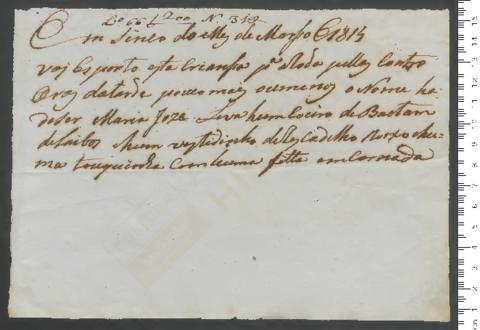 Lo 66 f 200 N. 318
Em Sinco do Mes de Março de 1815
vai Esposto esta Creansa pª a Roda pellas Coatro
oras da tarde pouco mais ou menos o Nome ha
de ser Maria Joze Leva hum Coeiro de Baetam
de faibos e hum vestidinho de Riscadilho Roxo e hu-
ma touquinha Com huma fitta emcarnada